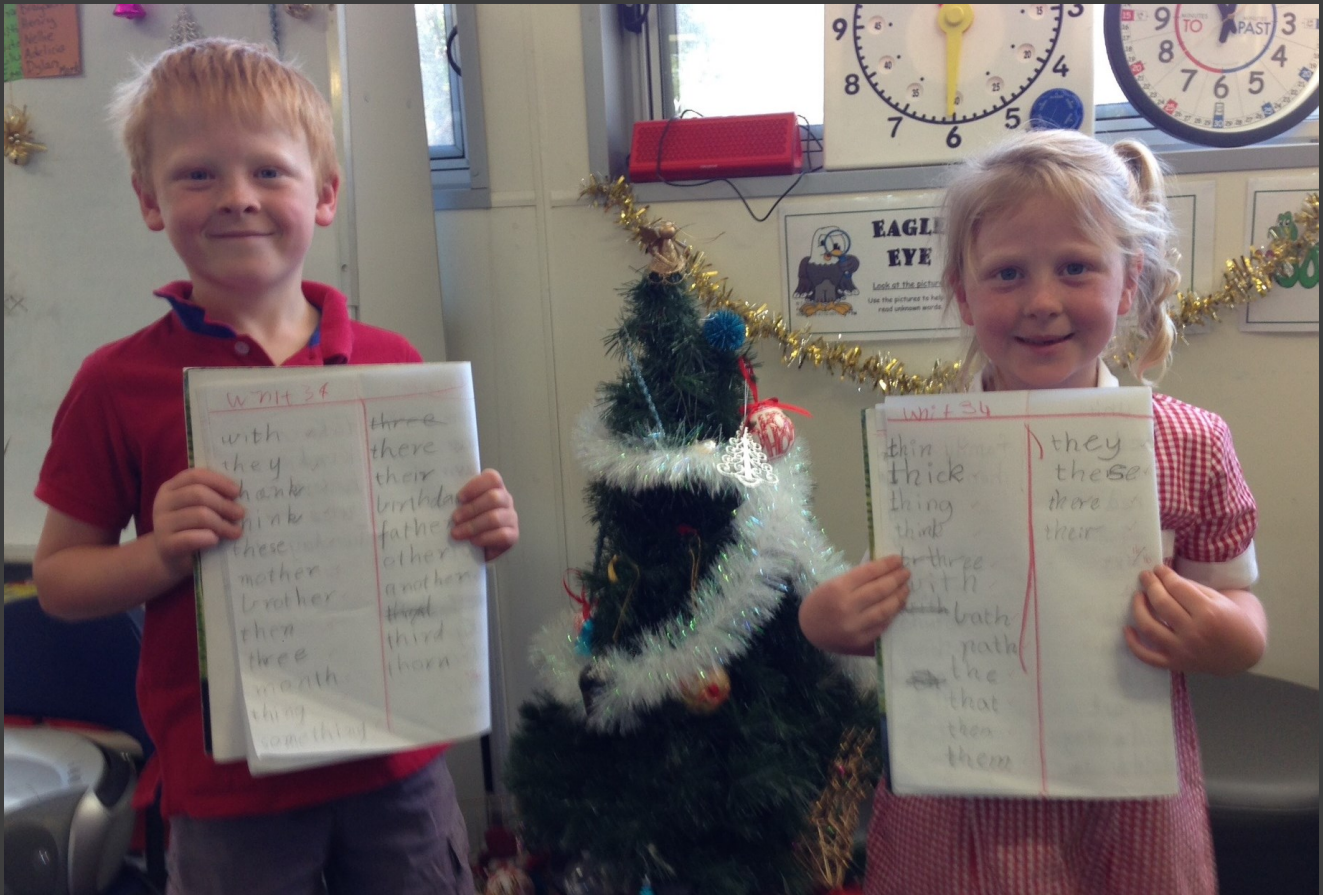 Henry
Nellie
Dylan
9
8
7
6
5
4
3
9
8
7
6
5
4
3
TO
PAST
EAGLE
EYE
Look at the
Use the pictures to
read unknown words
unit 34
with
they
thank
think
these
mother
brother
then
three
month
thing
something
three
there
their
birthday
father
other
another
third
thorn
unit 34
thin
thick
thing
think
three
with
bath
path
the
that
then
them
they
these
there
their